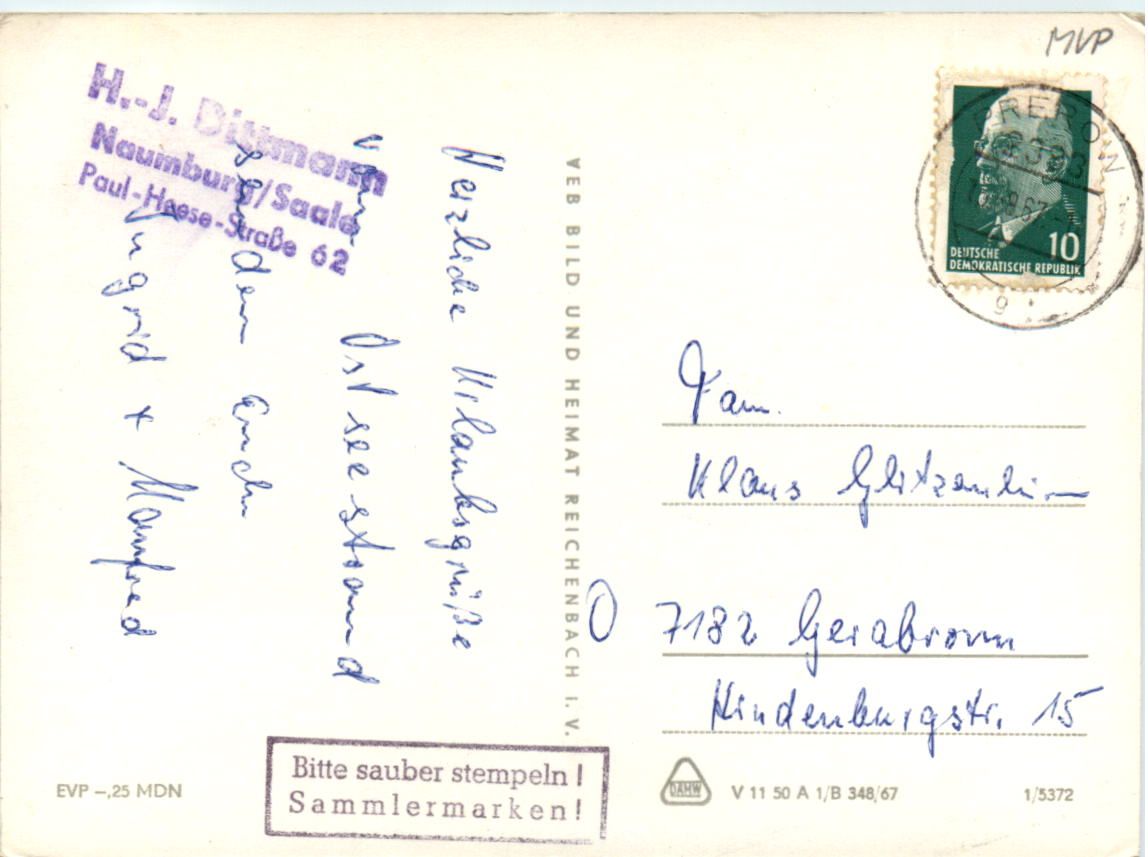 MVP
H.-J. Dittmann
Naumburg/Saale
Paul-Heese-Straße 62
Herzliche Urlaubsgrüße
vom Ostseestrand
senden Euch
Ingrid + Manfred
VEB BILD UND HEIMAT REICHENBACH I. V.
PREROW
10
DEUTSCHE
DEMOKRATISCHE REPUBLIK
Fam.
Klaus
7182 Gerabronn
Hindenburgstr. 15
Bitte sauber stempeln!
Sammlermarken!
EVP –,25 MDN
DAHW
V 11 50 A 1/B 348/67
1/5372